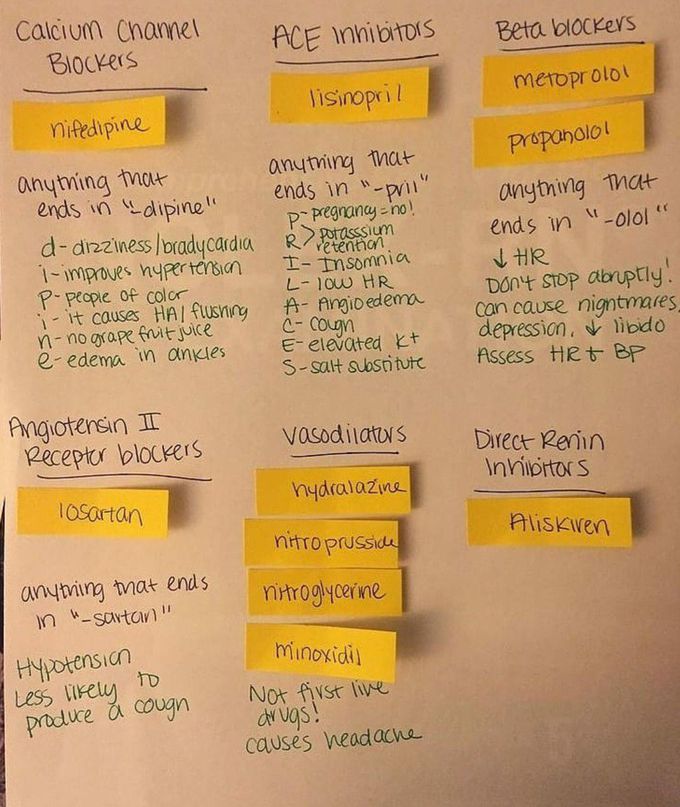 Calcium Channel
Blockers
nifedipine
anything that
ends in "-dipine"
d- dizziness/bradycardia
i- improves hypertension
p- people of color
i- it causes HA/flushing
n- no grapefruit juice
e- edema in ankles
ACE Inhibitors
lisinopril
anything that
ends in "-pril"
P- pregnancy = no!
R > potasssium
retention
I- Insomnia
L- low HR
A- Angioedema
C- cough
E- elevated K+
S- salt substitute
Beta blockers
metoprolol
propanolol
anything that
ends in "-olol"
↓ HR
Don't stop abruptly!
can cause nightmares,
depression, ↓ libido
Assess HR + BP
Angiotensin II
Receptor blockers
losartan
anything that ends
in "-sartan"
Hypotension
Less likely to
produce a cough
Vasodilators
hydralazine
nitroprusside
nitroglycerine
minoxidil
Not first line
drugs!
causes headache
Direct Renin
Inhibitors
Aliskiren